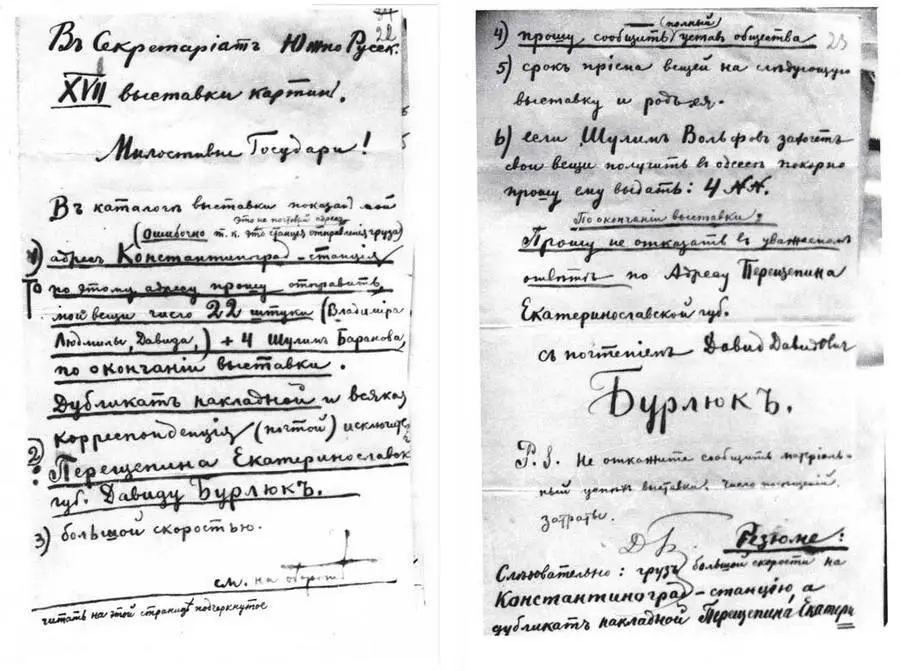 22
Въ Секретаріатъ Южно Русск.
XVII выставки картин.
Милостивые Государи!
Въ каталоге выставки показан мой
это не почтовый адрес
(Ошибочно т. к. это станція отправленія груза)
1) адресъ Константиноград-станція
По этому адресу прошу отправить
мои вещи число 22 штуки (Владиміра
Людмилы, Давида,) + 4 Шулим Баранова,
по окончаніи выставки.
Дубликатъ накладной и всякая
корреспонденція (почтой) исключ.
2) Перещепина Екатеринослав
губ. Давиду Бурлюкъ.
3) большой скоростью.
см. на оборот
читать на этой странице подчеркнутое
23
(полный)
4) прошу сообщить устав общества
5) срокъ пріема вещей на следующую
выставку и
6) если Шулимъ Вольфовъ захочетъ
свои вещи получить в одессе покорно
прошу ему выдать: 4 NN.
По окончаніи выставки:
Прошу не отказать в уважаемом
ответе по Адресу Перещепина
Екатеринославской губ.
съ почтеніем Давид Давидович
Бурлюкъ.
P.S. Не откажите сообщить матеріаль-
ный успех выставки, число посещений,
затраты.
ДБ
Резюме:
Следовательно: грузъ большой скорости на
Константиноград-станцію а
дубликатъ накладной Перещепина Екатери